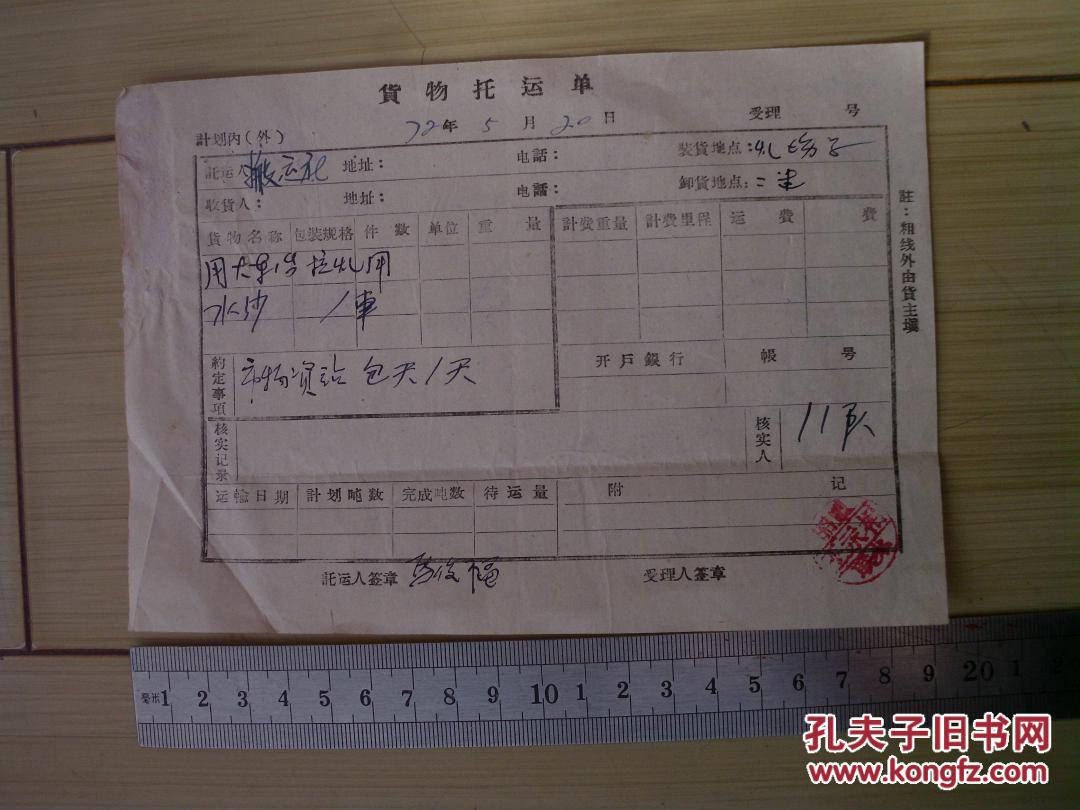 貨物托运单
計划内(外) 72年 5月 20日 受理 号
託运人 搬运社 地址: 电話: 装貨地点:
收貨人: 地址: 电話: 卸貨地点:
貨物名称 包装规格 件数 单位 重量 計费重量 計费里程 运费 费
水沙 1車
約定事項 市物资站 包天1天
开戶銀行 帳号
核实记录 核实人 11队
运輸日期 計划吨数 完成吨数 待运量 附记
託运人签章 受理人签章
註:粗线外由貨主填
毫米 1 2 3 4 5 6 7 8 9 10 1 2 3 4 5 6 7 8 9 20 1 2
孔夫子旧书网
www.kongfz.com